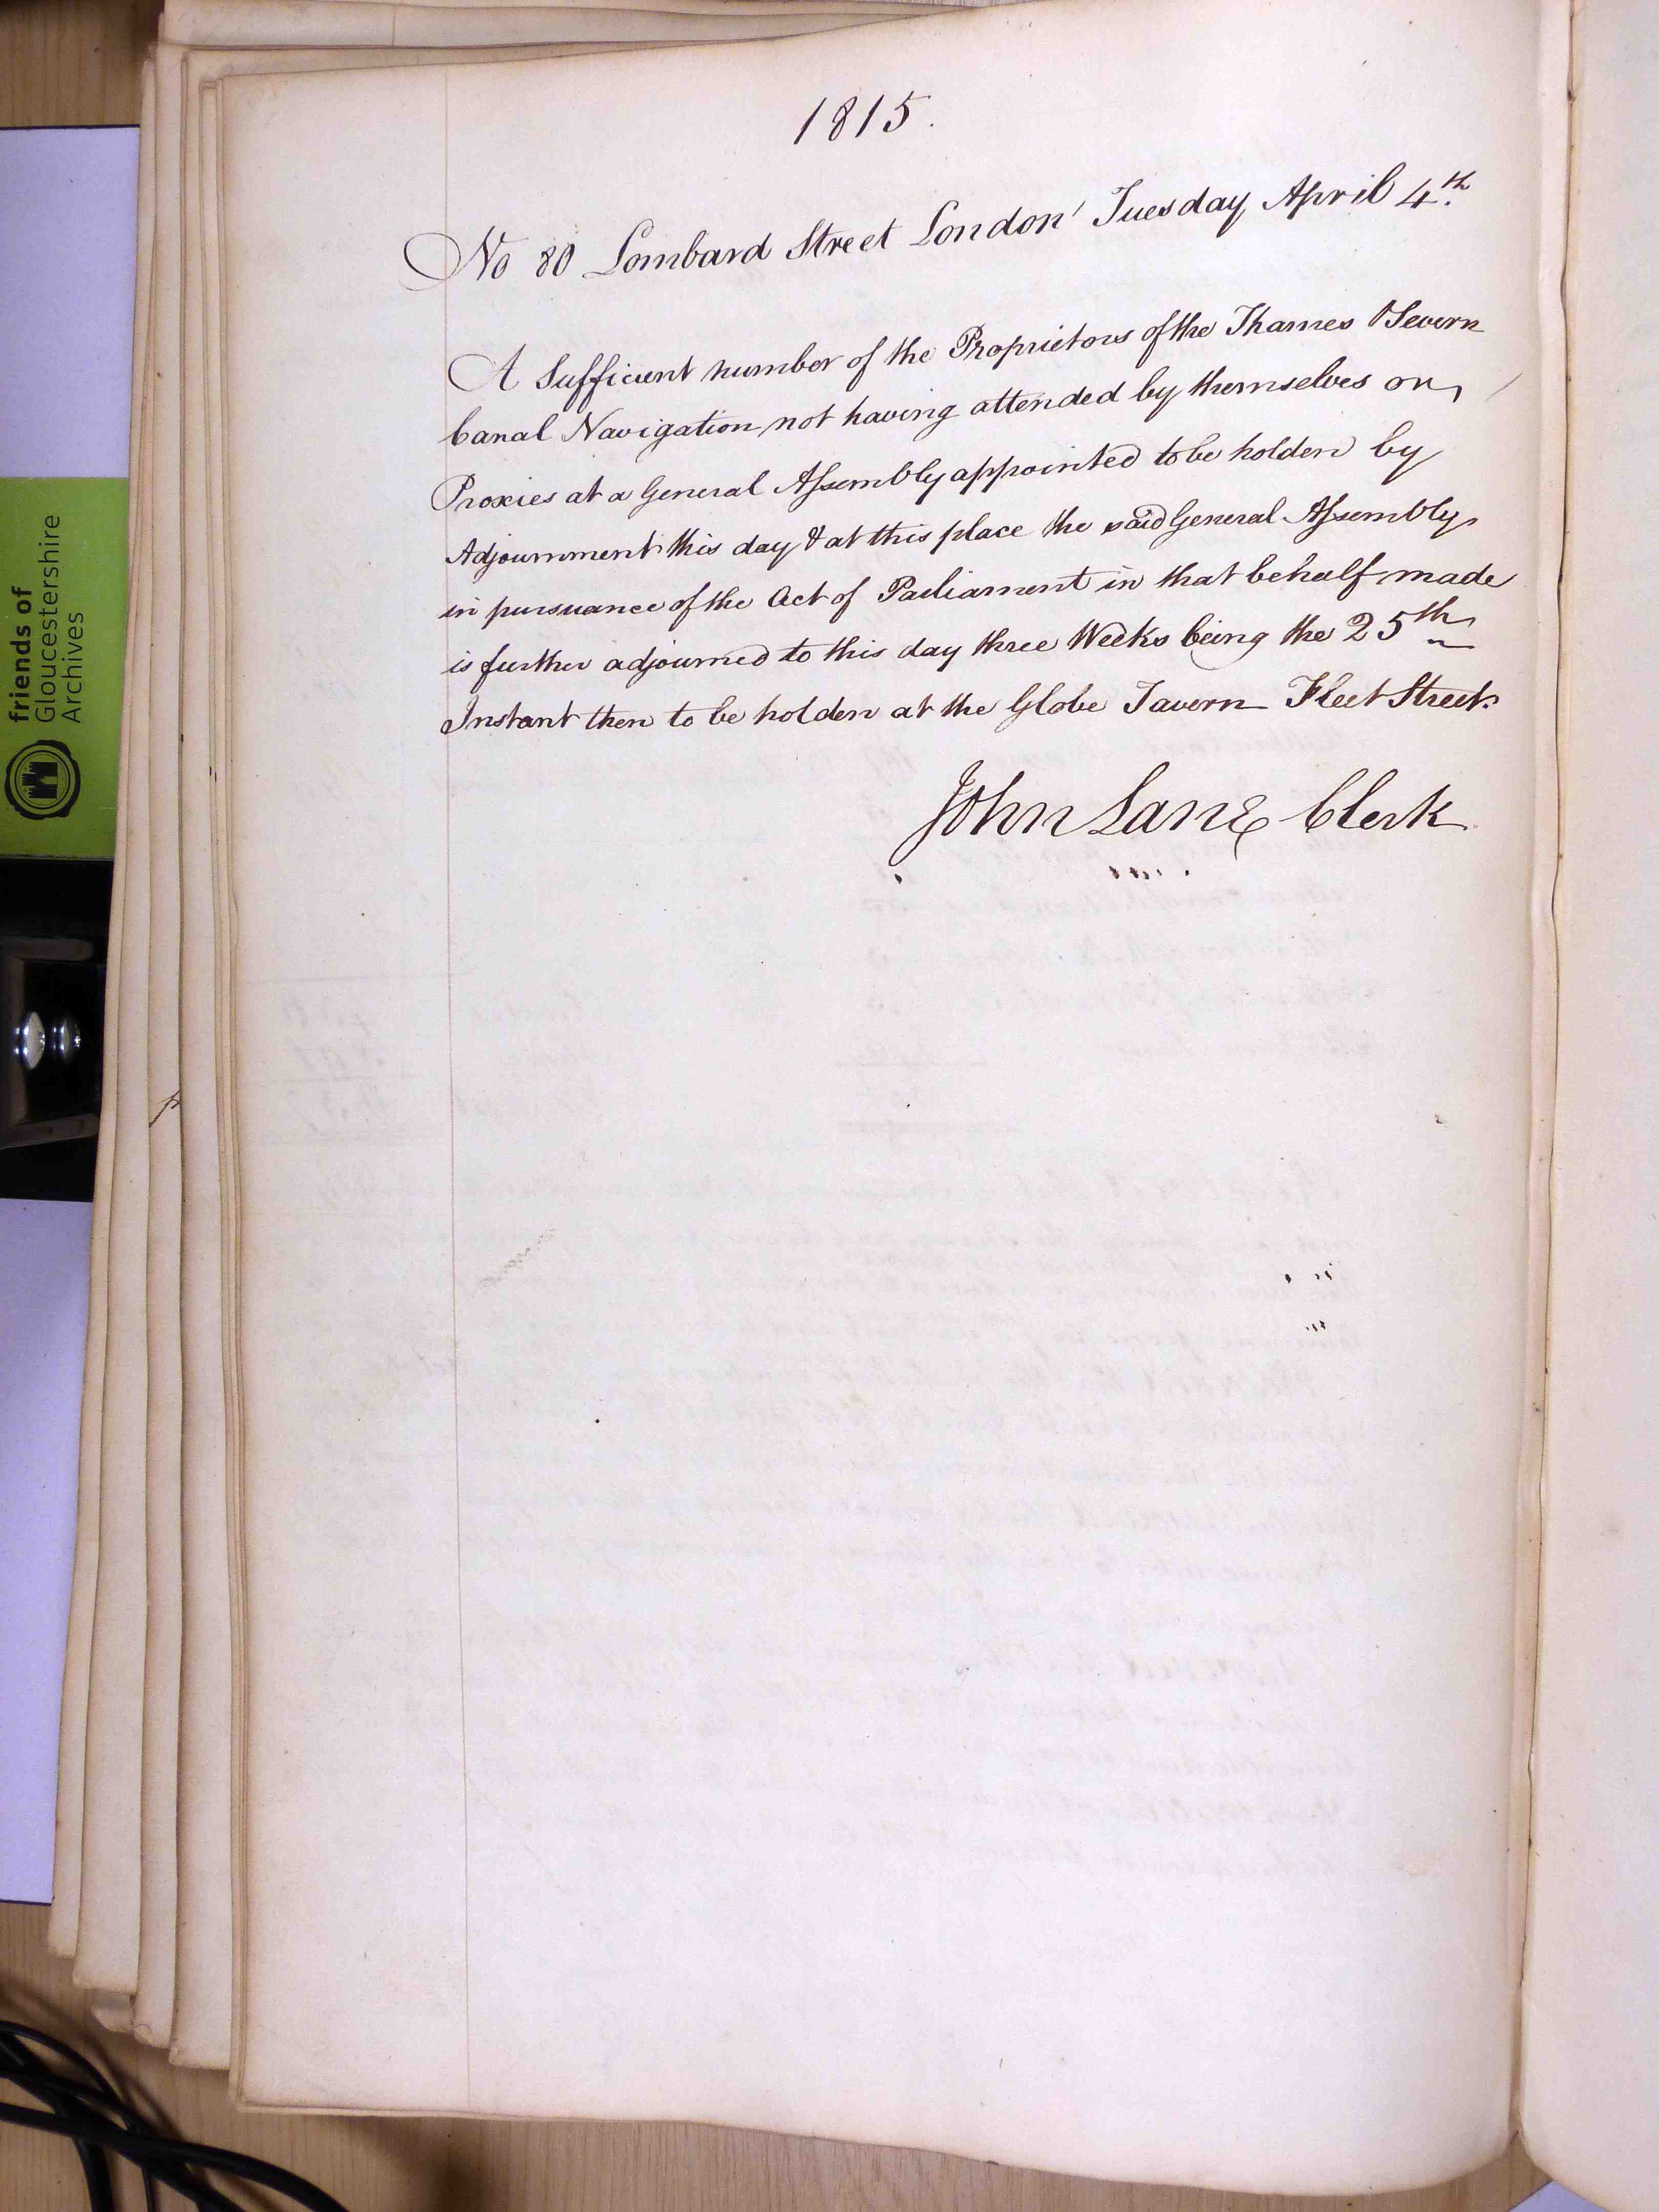 1815.
No 80 Lombard Street London Tuesday April 4th.
A Sufficient number of the Proprietors of the Thames & Severn
Canal Navigation not having attended by themselves or
Proxies at a General Assembly appointed to be holden by
Adjournment this day & at this place the said General Assembly
in pursuance of the Act of Parliament in that behalf made
is further adjourned to this day three Weeks being the 25th
Instant then to be holden at the Globe Tavern Fleet Street.
John Lane Clerk
friends of
Gloucestershire
Archives